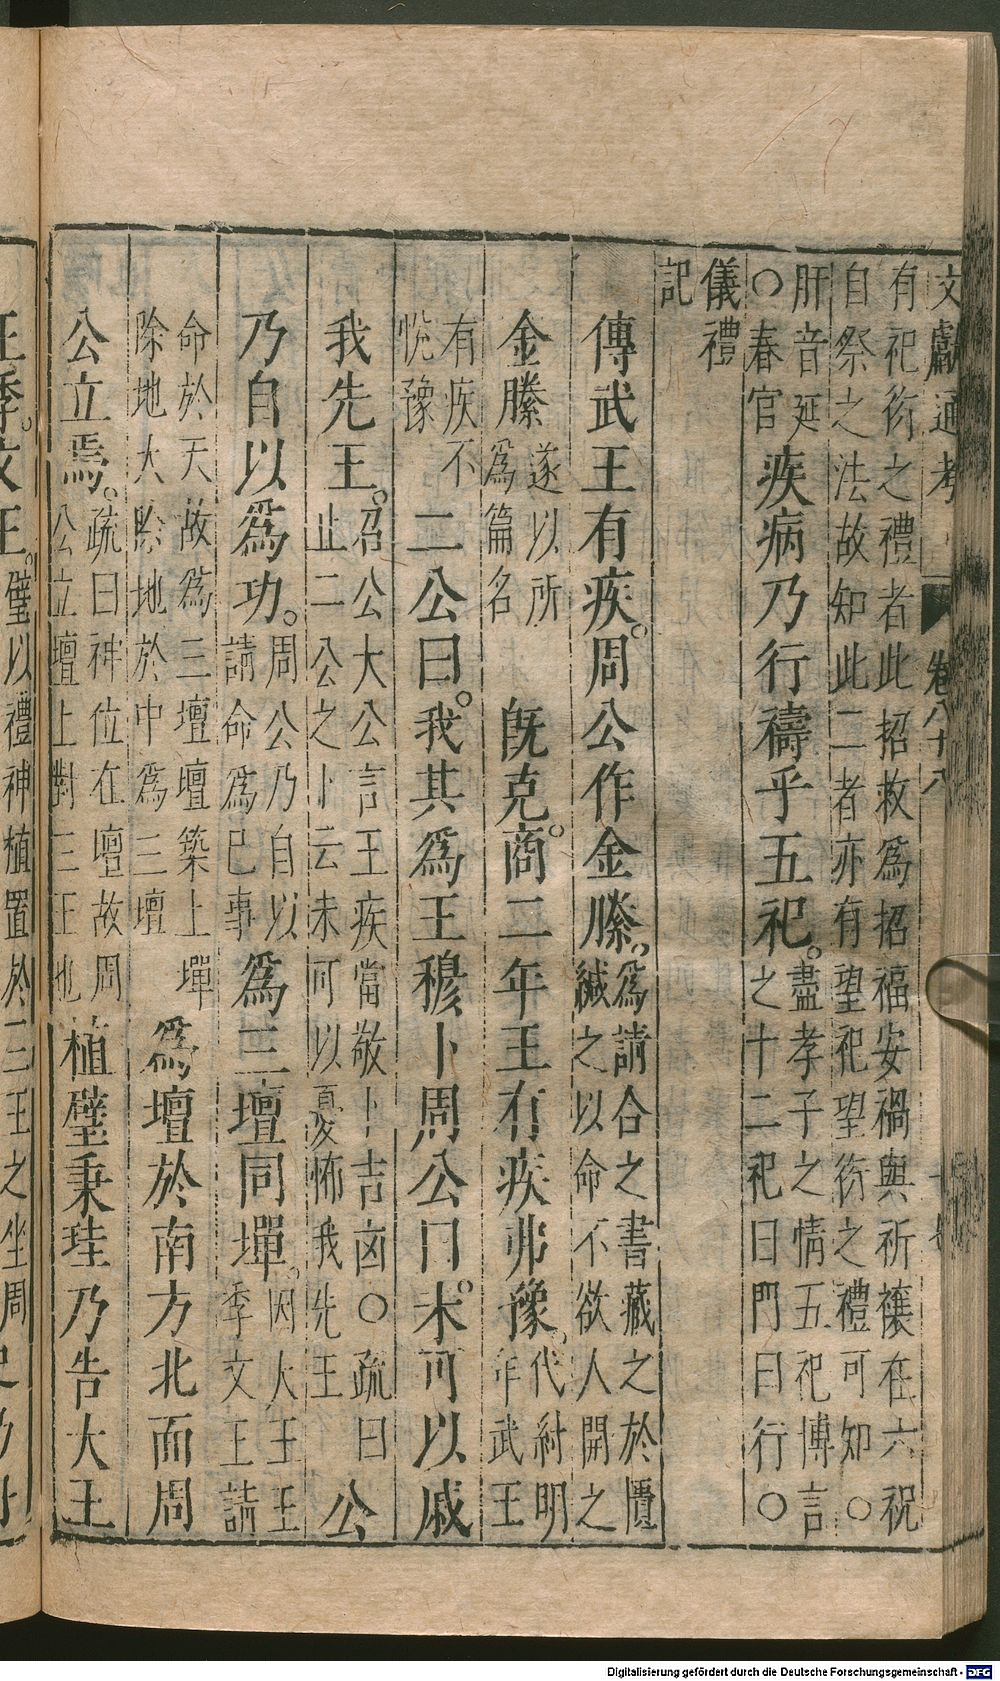 文獻通考 卷八十八
有祀衍之禮者此招救爲招福安禍與祈禳在六祝
自祭之法故知此二者亦有望祀望衍之禮可知○
肝音延
○春官
疾病乃行禱乎五祀
盡孝子之情五祀博言
之十二祀曰門曰行○
儀禮
記
傳武王有疾周公作金縢
爲請合之書藏之於匱
緘之以命不欲人開之
金縢
遂以所
爲篇名
旣克商二年王有疾弗豫
代紂明
年武王
有疾不
悅豫
二公曰我其爲王穆卜周公曰未可以戚
我先王
召公大公言王疾當敬卜吉凶○疏曰
止二公之卜云未可以憂怖我先王
公
乃自以爲功
周公乃自以
請命爲已事
爲三壇同墠
因大王王
季文王請
命於天故爲三壇壇築土墠
除地大除地於中爲三壇
爲壇於南方北面周
公立焉
疏曰神位在壇故周
公立壇上對三王也
植璧秉珪乃告大王
王季文王
璧以禮神植置於三王之坐周
Digitalisierung gefördert durch die Deutsche Forschungsgemeinschaft - DFG